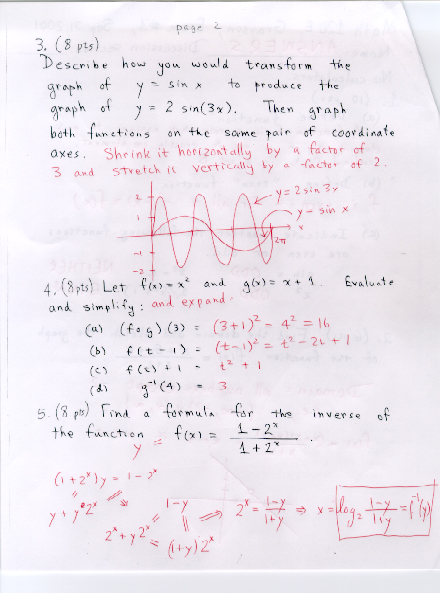 page 2
3. (8 pts)
Describe how you would transform the
graph of y = sin x to produce the
graph of y = 2 sin(3x). Then graph
both functions on the same pair of coordinate
axes. Shrink it horizontally by a factor of
3 and stretch it vertically by a factor of 2.
y = 2 sin 3x
y = sin x
2
1
x
2π
-1
-2
4. (8 pts) Let f(x) = x² and g(x) = x + 1. Evaluate
and simplify: and expand.
(a) (f∘g)(3) = (3+1)² = 4² = 16
(b) f(t - 1) = (t-1)² = t² - 2t + 1
(c) f(t) + 1 = t² + 1
(d) g⁻¹(4) = 3
5. (8 pts) Find a formula for the inverse of
the function y = f(x) = (1 - 2ˣ)/(1 + 2ˣ).
(1 + 2ˣ)y = 1 - 2ˣ
y + y2ˣ
1-y
2ˣ + y2ˣ = (1+y)2ˣ
⇒ 2ˣ = (1-y)/(1+y) ⇒ x = log₂ (1-y)/(1+y) = f⁻¹(y)